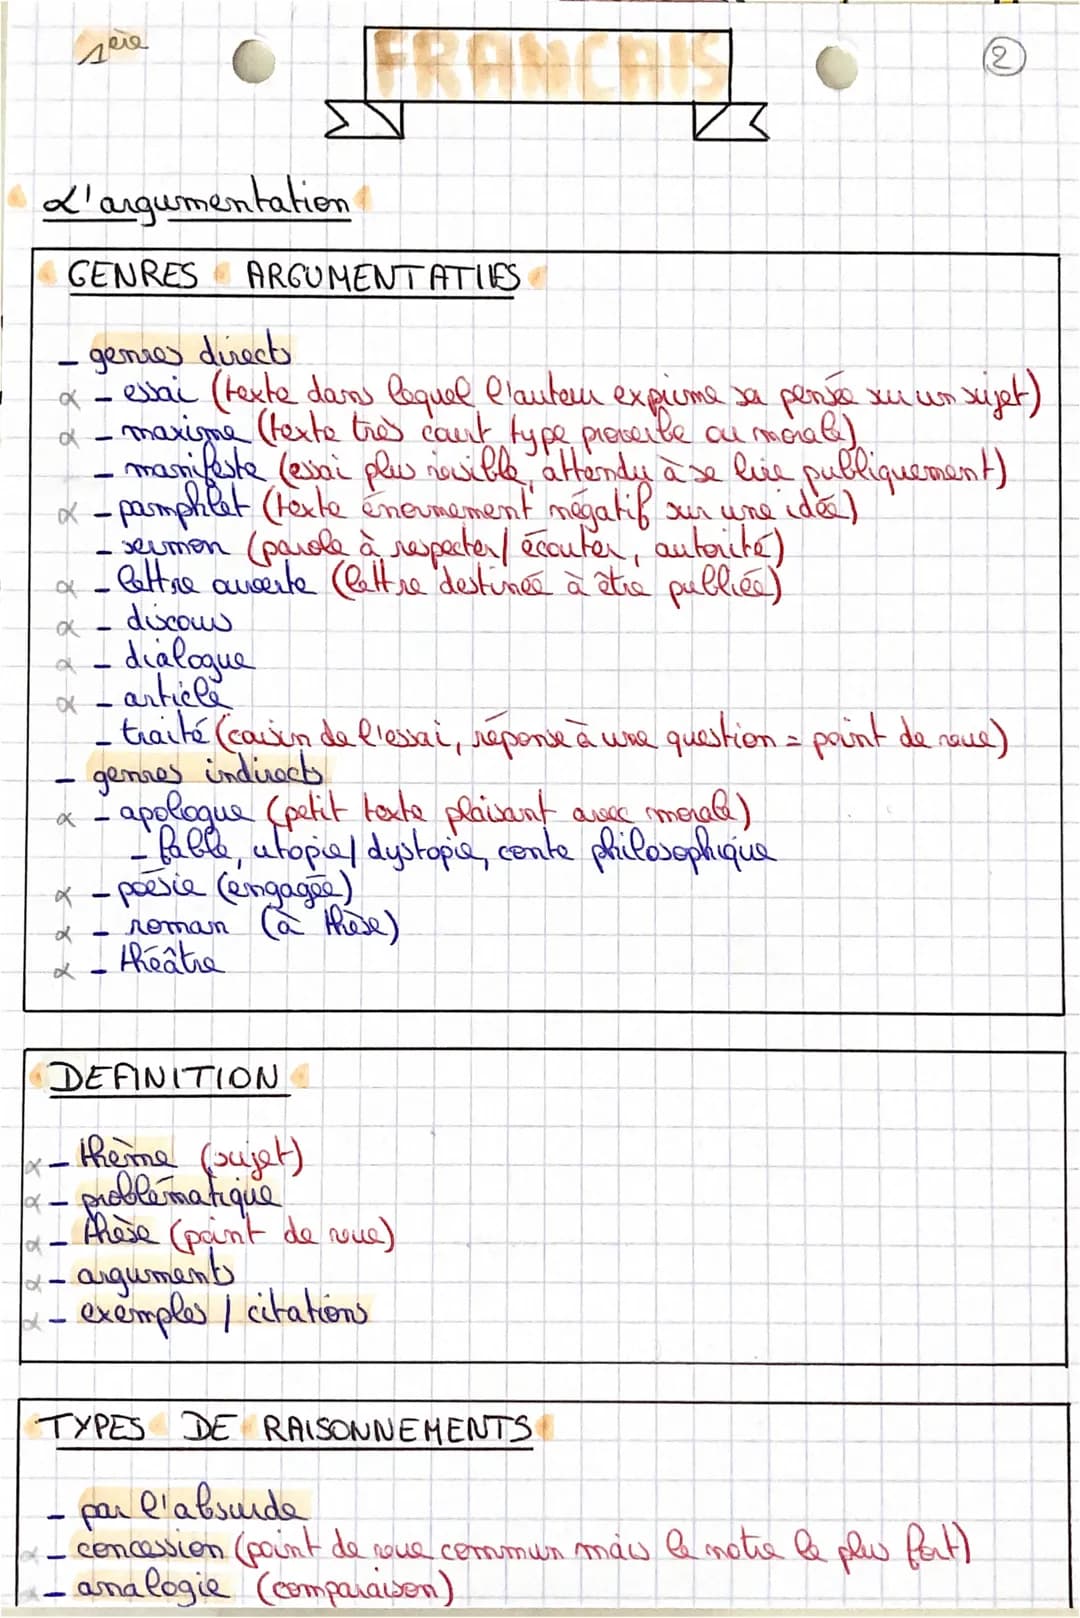 1ère
FRANCAIS
2
L'argumentation
GENRES ARGUMENTATIFS
- genres directs
α - essai (texte dans lequel l'auteur exprime sa pensée sur un sujet)
α - maxime (texte très court, type proverbe ou morale)
- manifeste (essai plus visible, attendu à se lire publiquement)
α - pamphlet (texte énormément négatif sur une idée)
- sermon (parole à respecter/ écouter, autorité)
α - lettre ouverte (lettre destinée à être publiée)
α - discours
α - dialogue
α - article
- traité (cousin de l'essai, réponse à une question = point de vue)
- genres indirects
α - apologue (petit texte plaisant avec morale)
- fable, utopie/ dystopie, conte philosophique
α - poésie (engagée)
α - roman (à thèse)
α - théâtre
DEFINITION
α - thème (sujet)
α - problématique
α - thèse (point de vue)
α - arguments
α - exemples / citations
TYPES DE RAISONNEMENTS
- par l'absurde
α - concession (point de vue commun mais le notre le plus fort)
α - analogie (comparaison)